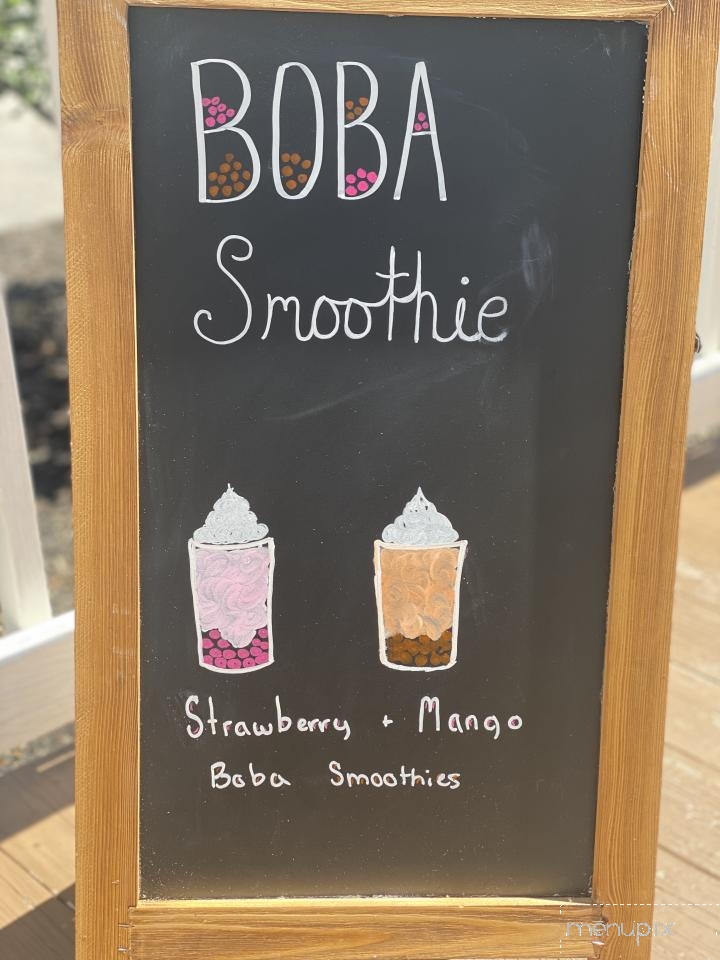 BOBA
Smoothie
Strawberry + Mango
Boba Smoothies